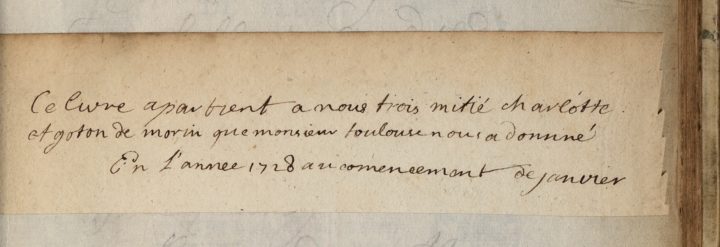 Ce livre apartient a nous trois mitié charlotte.
et goton de morin que monsieur toulouse nous a donnné
En l'annee 1728 au comencement de janvier